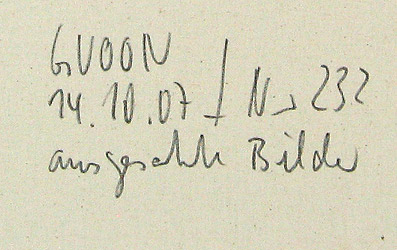 GVOON
14.10.07 / N 232
ausgesuchte Bilder